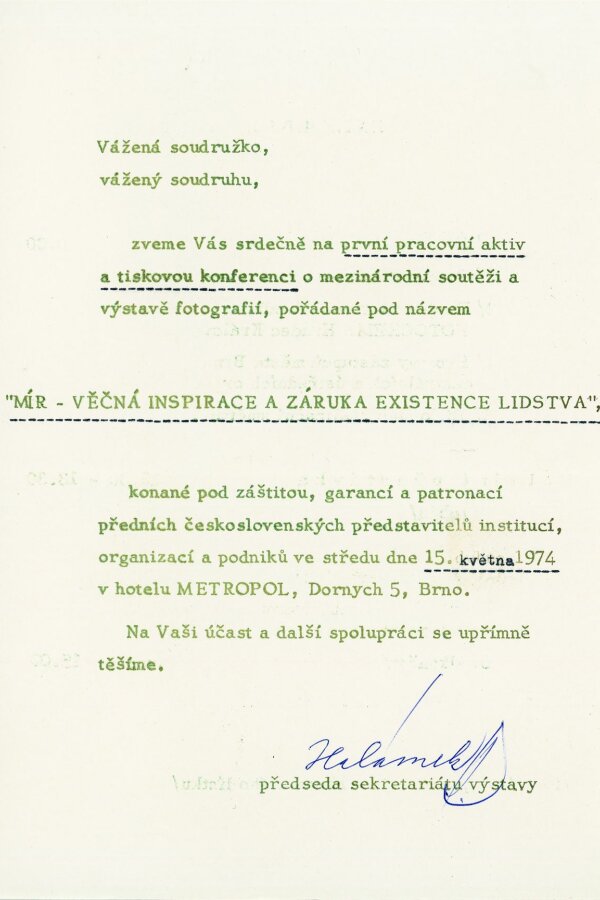 Vážená soudružko,
vážený soudruhu,
zveme Vás srdečně na první pracovní aktiv
a tiskovou konferenci o mezinárodní soutěži a
výstavě fotografií, pořádané pod názvem
"MÍR - VĚČNÁ INSPIRACE A ZÁRUKA EXISTENCE LIDSTVA",
konané pod záštitou, garancí a patronací
předních československých představitelů institucí,
organizací a podniků ve středu dne 15. května 1974
v hotelu METROPOL, Dornych 5, Brno.
Na Vaši účast a další spolupráci se upřímně
těšíme.
Halámek
předseda sekretariátu výstavy